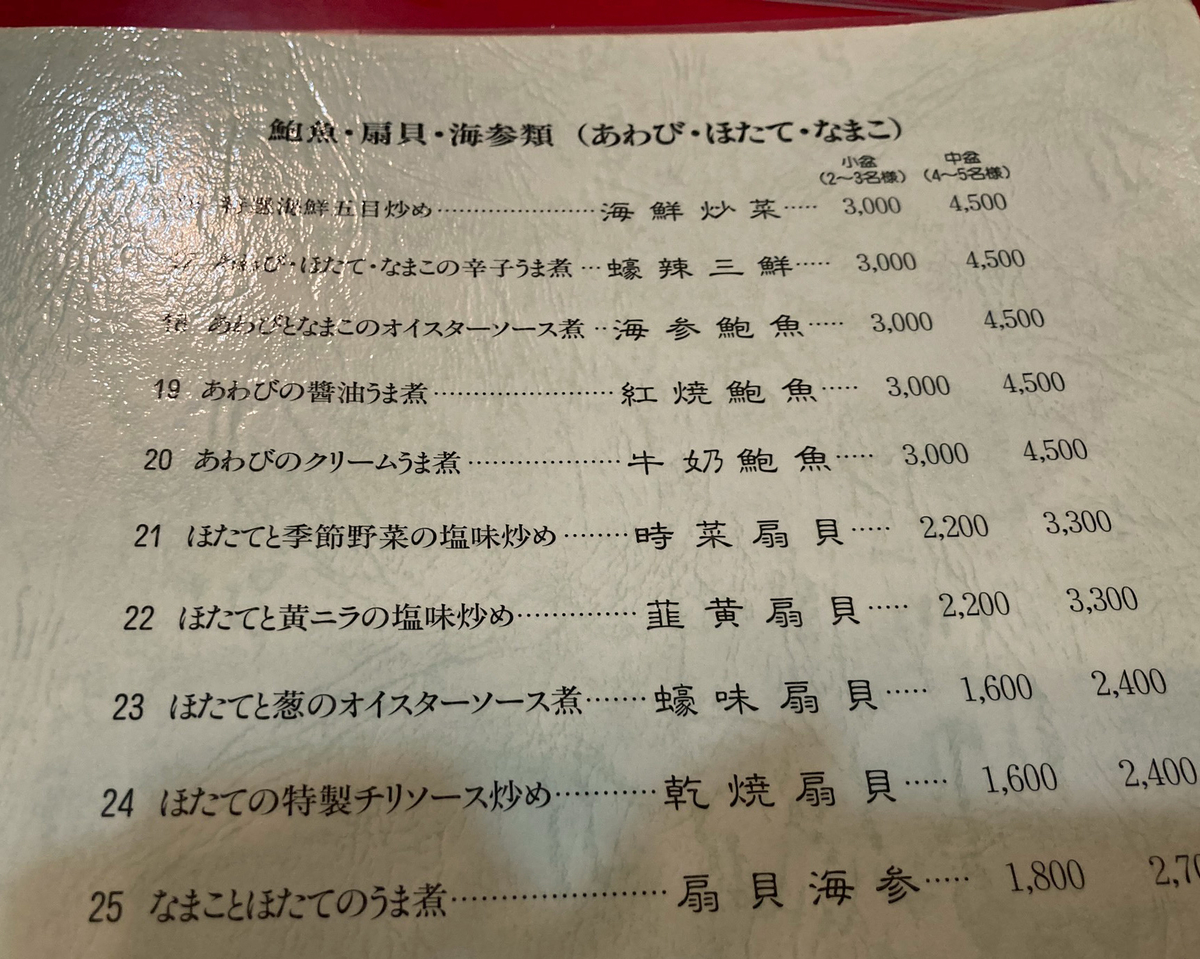 鮑魚・扇貝・海参類（あわび・ほたて・なまこ）
小盆 中盆
（2〜3名様） （4〜5名様）
海鮮五目炒め…………………海鮮炒菜…… 3,000 4,500
あわび・ほたて・なまこの辛子うま煮…蠔辣三鮮…… 3,000 4,500
18 あわびとなまこのオイスターソース煮…海参鮑魚…… 3,000 4,500
19 あわびの醬油うま煮…………………紅焼鮑魚…… 3,000 4,500
20 あわびのクリームうま煮………………牛奶鮑魚…… 3,000 4,500
21 ほたてと季節野菜の塩味炒め………時菜扇貝…… 2,200 3,300
22 ほたてと黄ニラの塩味炒め……………韮黄扇貝…… 2,200 3,300
23 ほたてと葱のオイスターソース煮………蠔味扇貝…… 1,600 2,400
24 ほたての特製チリソース炒め…………乾焼扇貝…… 1,600 2,400
25 なまことほたてのうま煮……………………扇貝海参…… 1,800 2,70